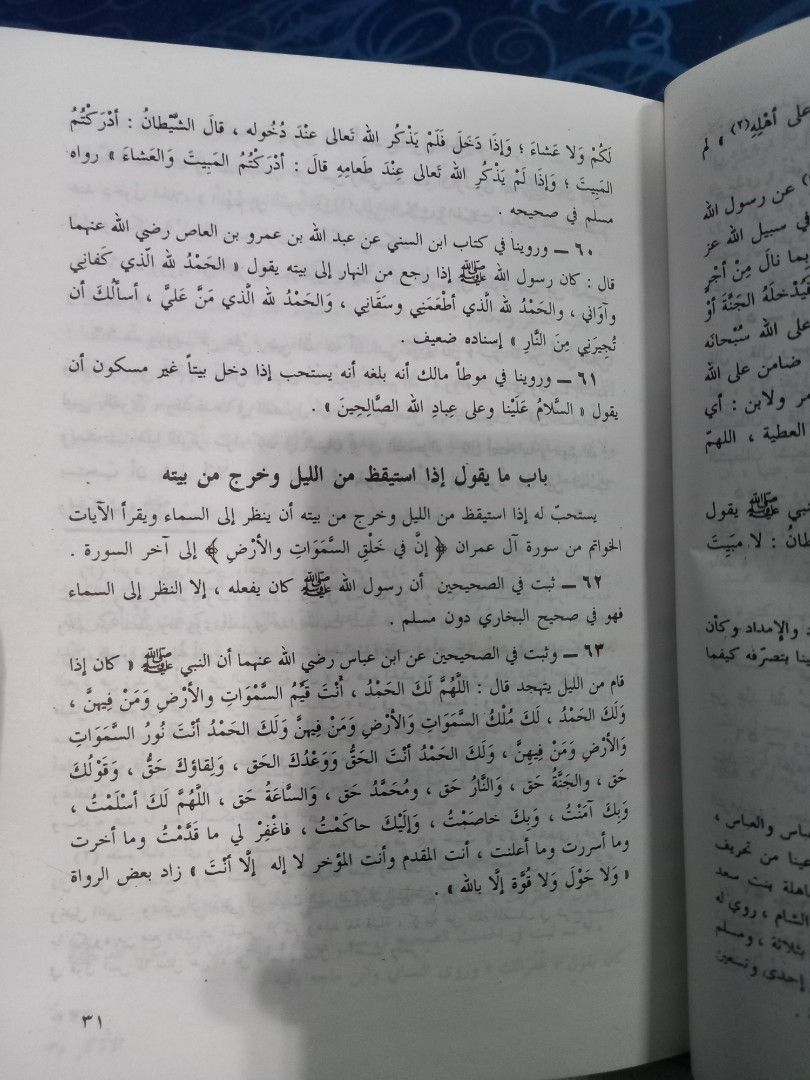 لَكُمْ وَلا عَشاءَ ؛ وَإِذَا دَخَلَ فَلَمْ يَذْكُرِ الله تَعالى عِنْدَ دُخُولِه ، قالَ الشَّيْطانُ : أَدْرَكْتُمُ
المَبِيتَ ؛ وَإِذَا لَمْ يَذْكُرِ الله تَعالى عِنْدَ طَعامِهِ قالَ : أَدْرَكْتُمُ المَبِيتَ وَالعَشاءَ » رواه
مسلم في صحيحه .
٦٠ ــ وروينا في كتاب ابن السني عن عبد الله بن عمرو بن العاص رضي الله عنهما
قال : كان رسول الله ﷺ إذا رجع من النهار إلى بيته يقول « الحَمْدُ لله الَّذي كَفاني
وآوَاني ، والحَمْدُ لله الَّذي أطْعَمَنِي وسَقَانِي ، وَالحَمْدُ لله الَّذي مَنَّ عَليَّ ، أسألُكَ أن
تُجِيرَنِي مِنَ النَّارِ » إسناده ضعيف .
٦١ ــ وروينا في موطأ مالك أنه بلغه أنه يستحب إذا دخل بيتاً غير مسكون أن
يقول « السَّلامُ عَلَيْنا وعلى عِبادِ الله الصَّالِحِينَ » .
باب ما يقول إذا استيقظ من الليل وخرج من بيته
يستحبّ له إذا استيقظ من الليل وخرج من بيته أن ينظر إلى السماء ويقرأ الآيات
الخواتم من سورة آل عمران ﴿ إنَّ في خَلْقِ السَّمَواتِ والأرْضِ ﴾ إلى آخر السورة .
٦٢ ــ ثبت في الصحيحين أن رسول الله ﷺ كان يفعله ، إلا النظر إلى السماء
فهو في صحيح البخاري دون مسلم .
٦٣ ــ وثبت في الصحيحين عن ابن عباس رضي الله عنهما أن النبي ﷺ « كان إذا
قام من الليل يتهجد قال : اللَّهُمَّ لَكَ الحَمْدُ ، أَنْتَ قَيِّمُ السَّمْوَاتِ والأرْضِ وَمَنْ فِيهنَّ ،
وَلَكَ الحَمْدُ ، لَكَ مُلْكُ السَّمَوَاتِ وَالأَرْضِ وَمَنْ فِيهنَّ وَلَكَ الحَمْدُ أنْتَ نُورُ السَّمَوَاتِ
وَالأَرْضِ وَمَنْ فِيهنَّ ، وَلَكَ الحَمْدُ أنْتَ الحَقُّ وَوَعْدُكَ الحَق ، وَلِقاؤكَ حَقُّ ، وَقَوْلُكَ
حَق ، والجَنَّةُ حَق ، وَالنَّارُ حَق ، ومُحَمَّدُ حَق ، وَالسَّاعَةُ حَق ، اللَّهُمَّ لَكَ أسْلَمْتُ ،
وَبِكَ آمَنْتُ ، وَبِكَ خاصَمْتُ ، وَإلَيْكَ حاكَمْتُ ، فاغْفِرْ لي ما قَدَّمْتُ وما أخرت
وما أسررت وما أعلنت ، أنت المقدم وأنت المؤخر لا إله إلَّا أنْتَ » زاد بعض الرواة
« وَلا حَوْلَ وَلا قُوَّة إلَّا بالله » .
٣١
على أهْلِهِ(٢) » لم
عن رسول الله
في سبيل الله عز
بما نالَ مِنْ أجْرٍ
فَيُدْخِلَهُ الجَنَّةَ أوْ
على الله سُبْحانَه
ضامن على الله
ولابن : أي
العطية ، اللهمّ
ﷺ يقول
لا مبِيتَ
والإمداد وكأن
بتصرّفه كيفما
والعباس ،
من تحريف
بنت سعد
الشام ، روي له
بثلاثة ، ومسلم
إحدى وتسعين